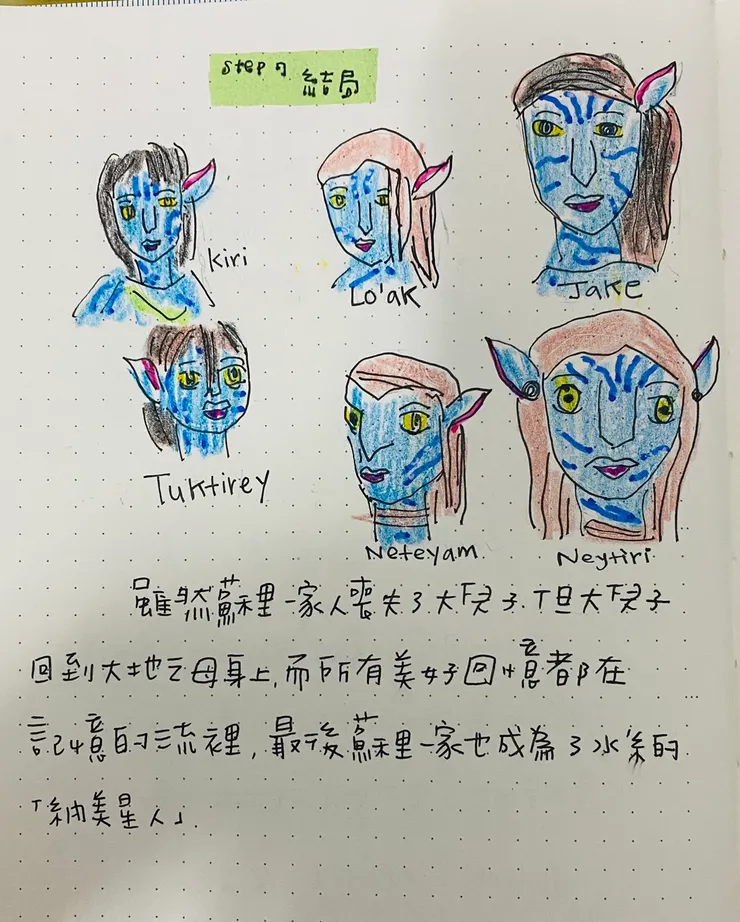 step 7 結局
Kiri
Lo'ak
Jake
Tuktirey
Neteyam
Neytiri
雖然蘇里一家人喪失了大兒子,但大兒子
回到大地之母身上,而所有美好回憶都在
記憶的流裡,最後蘇里一家也成為了水系的
「納美星人」